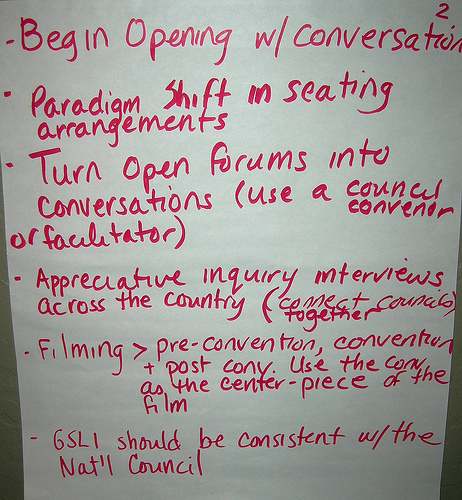 2
- Begin Opening w/ conversation
• Paradigm Shift in seating
arrangements
• Turn Open forums into
conversations (use a council
convenor
or facilitator)
- Appreciative inquiry interviews
across the country (connect councils)
together
- Filming > pre-convention, convention
+ post conv. Use the conv.
as the center-piece of the
film
- GSLI should be consistent w/ the
Nat'l Council